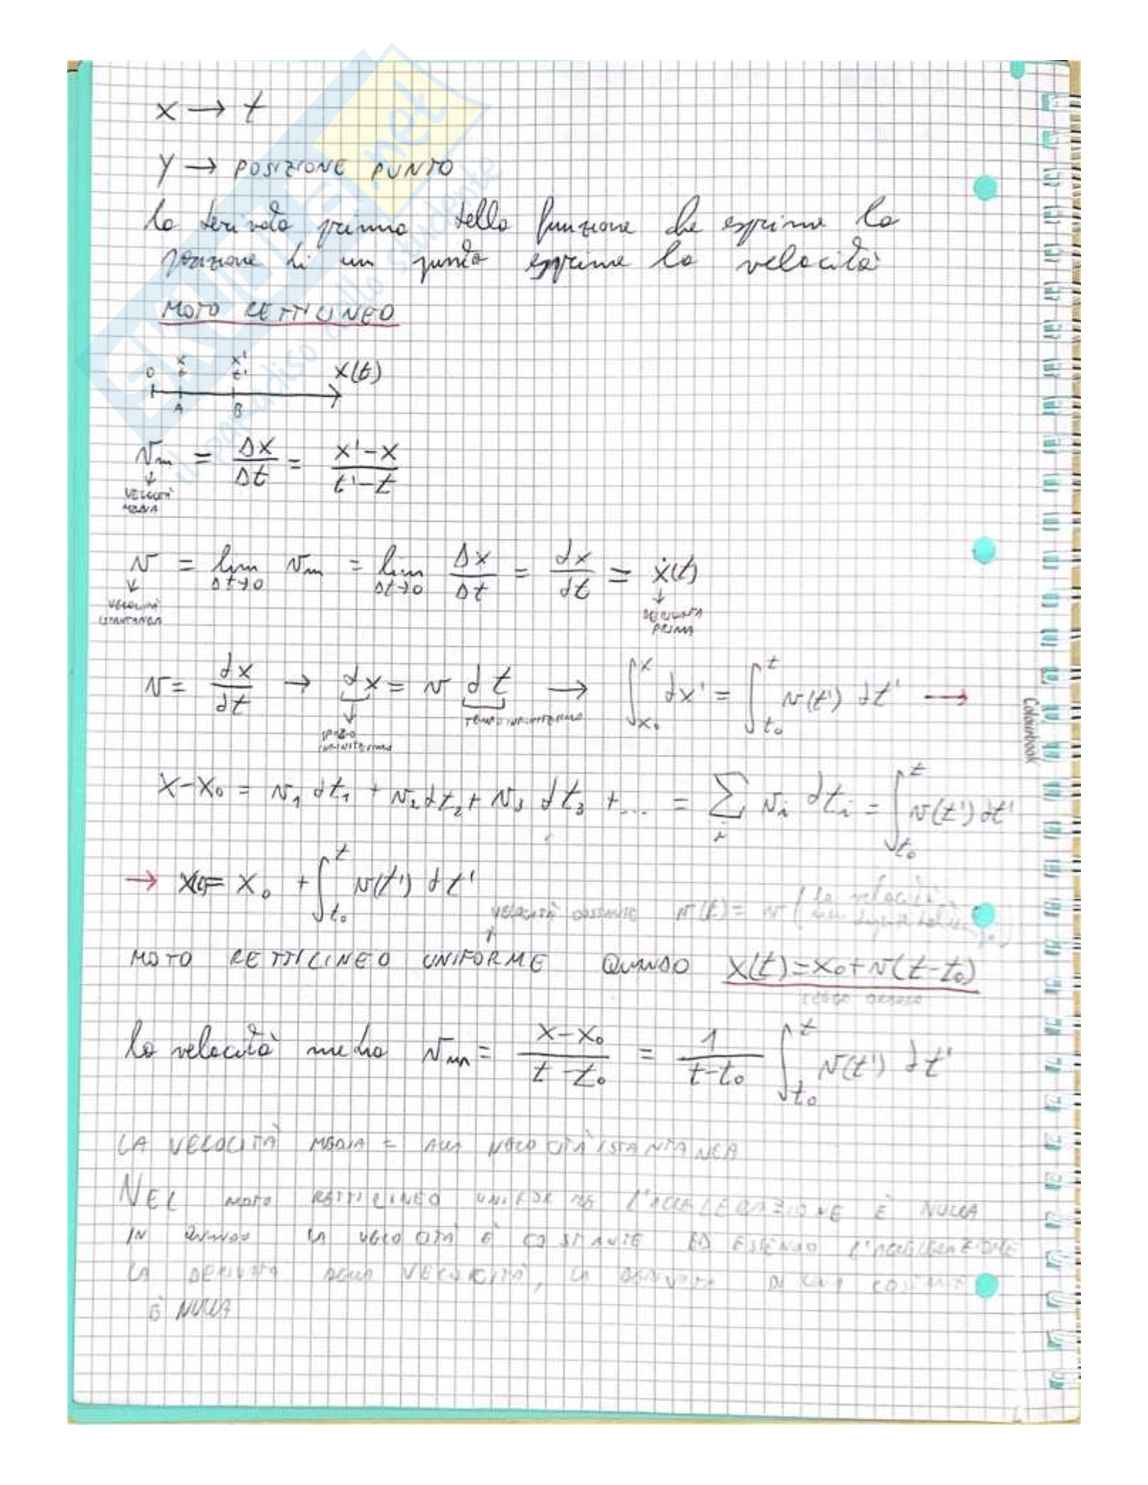 x → t
y → POSIZIONE PUNTO
la derivata prima della funzione che esprime la
posizione di un punto esprime la velocità
MOTO RETTILINEO
O x t x' t' x(t)
A B
v_m = Δx/Δt = (x'-x)/(t'-t)
↓
VELOCITÀ
MEDIA
v = lim_{Δt→0} v_m = lim_{Δt→0} Δx/Δt = dx/dt = ẋ(t)
↓ ↓
VELOCITÀ DERIVATA
ISTANTANEA PRIMA
v = dx/dt → dx = v dt → ∫_{x₀}^{x} dx' = ∫_{t₀}^{t} v(t') dt' →
↓ TEMPO INFINITESIMO
SPAZIO
INFINITESIMO
x-x₀ = v₁ dt₁ + v₂ dt₂ + v₃ dt₃ + ... = Σ_i v_i dt_i = ∫_{t₀}^{t} v(t') dt'
→ x(t) = x₀ + ∫_{t₀}^{t} v(t') dt'
VELOCITÀ COSTANTE v(t) = v (la velocità
MOTO RETTILINEO UNIFORME QUANDO x(t) = x₀ + v(t-t₀)
LEGGE ORARIA
la velocità media v_m = (x-x₀)/(t-t₀) = 1/(t-t₀) ∫_{t₀}^{t} v(t') dt'
LA VELOCITÀ MEDIA = ALLA VELOCITÀ ISTANTANEA
NEL MOTO RETTILINEO UNIFORME L'ACCELERAZIONE È NULLA
IN QUANDO LA VELOCITÀ È COSTANTE ED ESSENDO L'ACCELERAZIONE
LA DERIVATA DELLA VELOCITÀ, LA DERIVATA DI UNA COSTANTE
È NULLA
Colourbook
SKUOLA.net
il paradiso dello studente